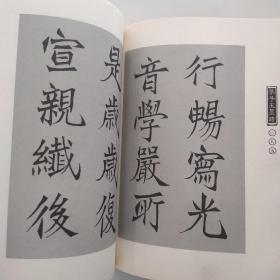 行暢寫光
音學嚴所
是歲歲復
宣親纖後